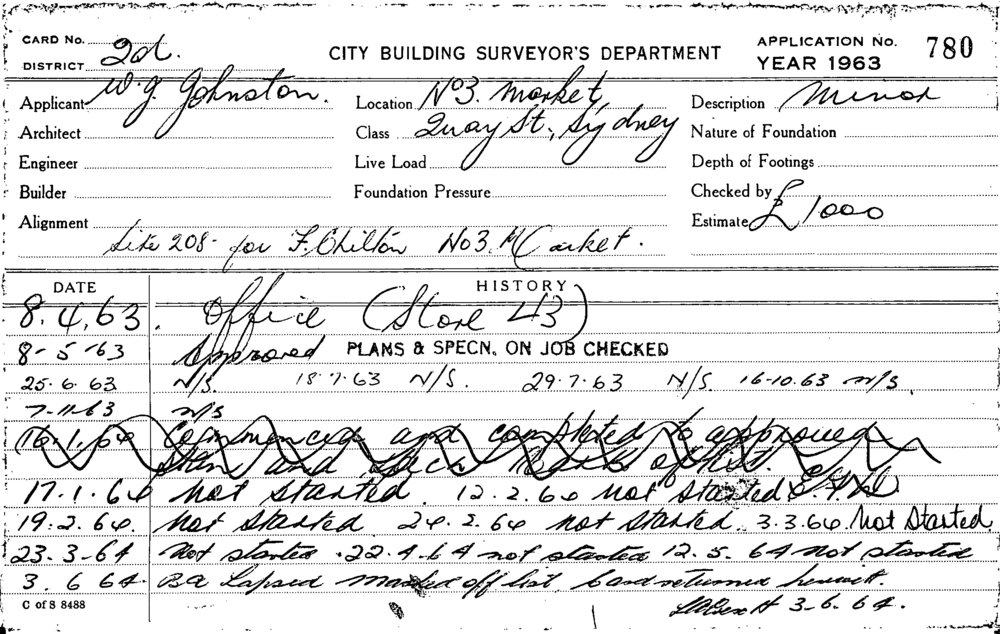 CARD No. 2d. CITY BUILDING SURVEYOR'S DEPARTMENT APPLICATION No. 780
DISTRICT YEAR 1963
Applicant W.J. Johnston. Location No3. Market, Description Minor
Architect Class Quay St., Sydney Nature of Foundation
Engineer Live Load Depth of Footings
Builder Foundation Pressure Checked by
Alignment Estimate £1000
Site 208 - for F. Chilton No3. Market.
DATE HISTORY
8.4.63. Office (Store 43)
8-5-63 Approved PLANS & SPECN. ON JOB CHECKED
25.6.63 N/S. 18.7.63 N/S. 29.7.63 N/S. 16-10.63 N/S.
7-11-63 N/S
16.1.64 Commenced and completed to approved
plan and specn. list.
17.1.64 Not Started. 12.2.64 Not Started
19.2.64. Not Started 24.2.64 not started. 3.3.64. Not Started
23.3-64 Not started. 22.4.64 not started 12.5.64 not started
3.6 64. BA Lapsed marked off list. Card returned herewith.
C of S 8488 3-6.64.